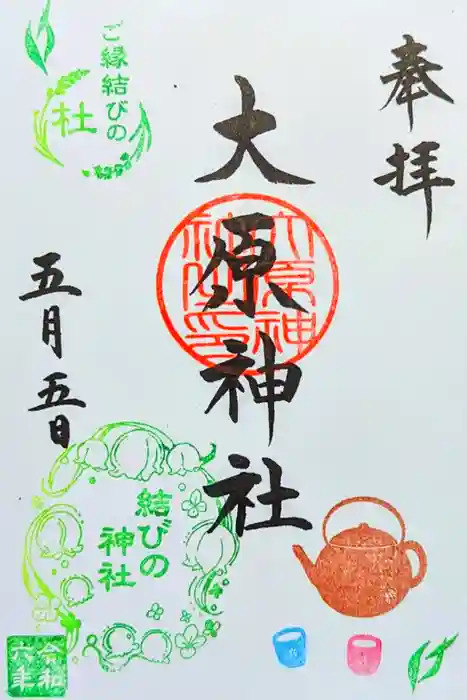 奉拝
大原神社
大原神社之印
ご縁結びの
杜
五月五日
結びの
神社
令和
六年